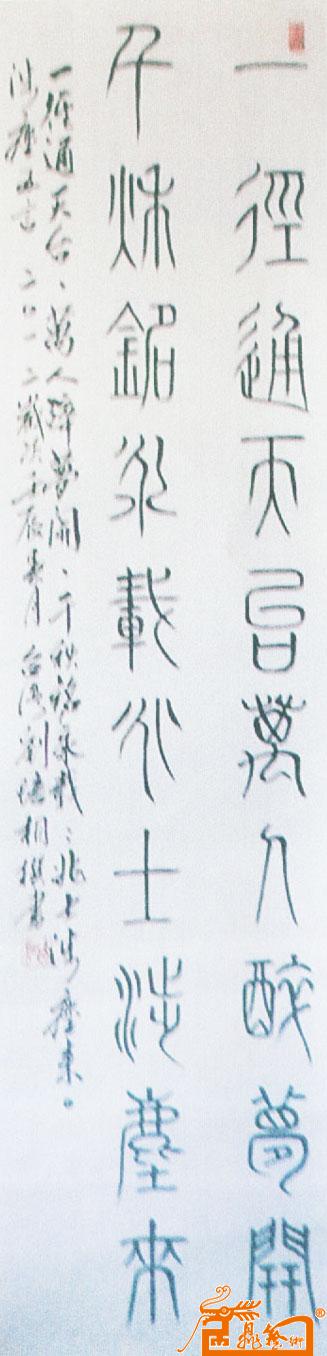 一徑通天台萬人醉夢開
千秋銘永載北士涉塵來
一徑通天台、萬人醉夢開、千秋銘永載、北士涉塵來。
涉塵五言 二〇一二歲次壬辰 月 台灣劉 相撰書